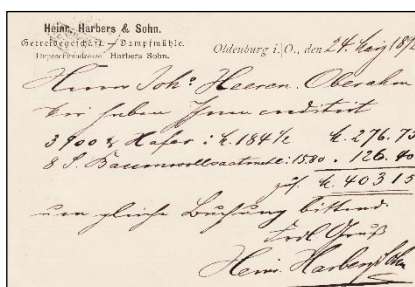 Heinr. Harbers & Sohn.
Getreidegeschäft. — Dampfmühle.
Depeschenadresse Harbers Sohn.
Oldenburg i. O., den 24. 189
Herrn Joh: Heeren. Oberahm
Wir haben Ihnen creditirt
3900 Hafer à 184½ M. 276.75
8 S. Baumwollsaatmehl: 15.80 . 126.40
M. 403.15
um gleiche Buchung bittend
Gruß
Heinr. Harbers & Sohn